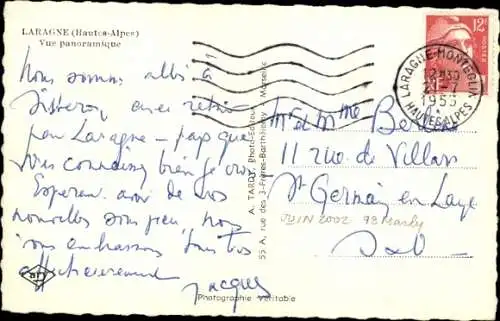 LARAGNE (Hautes-Alpes)
Vue panoramique
Nous sommes allés à
Sisteron avec retour
par Laragne - pays que
vous connaissez bien je crois
Espérons avoir de vos
nouvelles sous peu, nous
vous embrassons tous très
affectueusement
Jacques
Photographie véritable
A. TARDY, Photo-Editeur
55 A, rue des 3-Frères-Barthélemy - Marseille
12F
POSTES
LARAGNE-MONTEGLIN
12H30
21-7
1953
HAUTES-ALPES
Mr et Mme
11 rue de Villars
St Germain en Laye
JUIN 2002 78 Marly
S et O